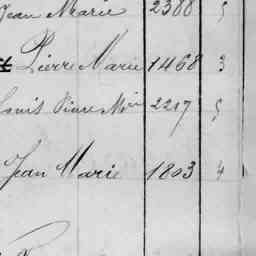 Jean Marie 2388 5
Pierre Marie 1468 3
Louis Pierre Mie 2217 5
Jean Marie 1803 4